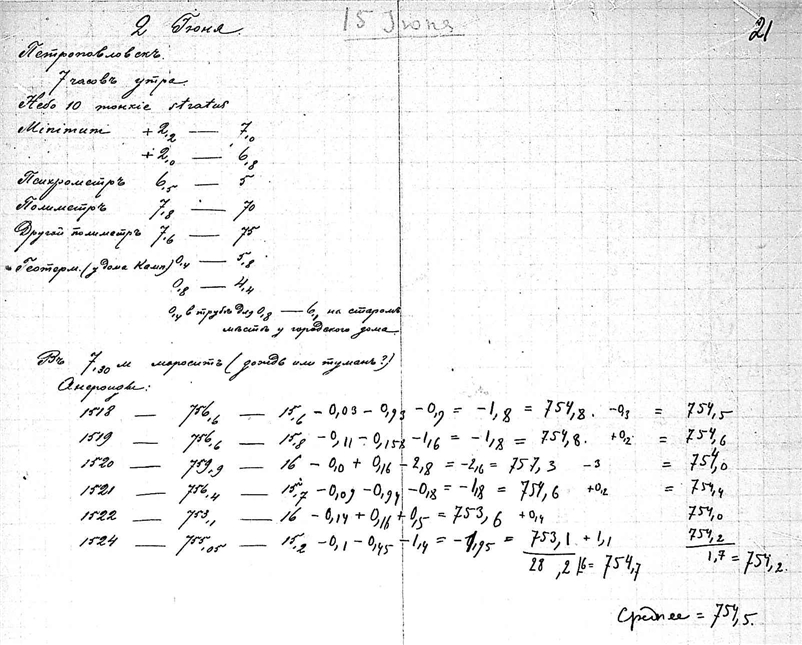 2 Іюня. 15 Іюня 21
Петропавловскъ.
7 часовъ утра.
Небо 10 тонкіе stratus
Minimum +2,2 — 7,0
+2,0 — 6,8
Психрометръ 6,5 — 5
Полиметръ 7,8 — 70
Другой полиметръ 7,6 — 75
Геотерм. (у дома Камч) 0,4 — 5,8
0,8 — 4,4
0,4 в трубѣ для 0,8 — 6,1 на старомъ
мѣстѣ у городского дома
Въ 7,30 м мороситъ (дождь или туманъ?)
Анероиды:
1518 — 756,6 — 15,6 - 0,03 - 0,93 - 0,9 = -1,8 = 754,8. -0,3 = 754,5
1519 — 756,6 — 15,8 - 0,11 - 0,158 - 1,6 = -1,8 = 754,8. +0,2 = 754,6
1520 — 759,9 — 16 - 0,0 + 0,16 - 2,8 = -2,6 = 757,3 -3 = 754,0
1521 — 756,4 — 15,7 - 0,09 - 0,94 - 0,8 = -1,8 = 754,6 +0,2 = 754,4
1522 — 753,1 — 16 - 0,14 + 0,16 + 0,5 = 753,6 +0,4 754,0
1524 — 755,05 — 15,2 - 0,1 - 0,45 - 1,4 = -1,95 = 753,1 + 1,1 754,2
28,2 |6 = 754,7 1,7 = 754,2.
Среднее = 754,5.